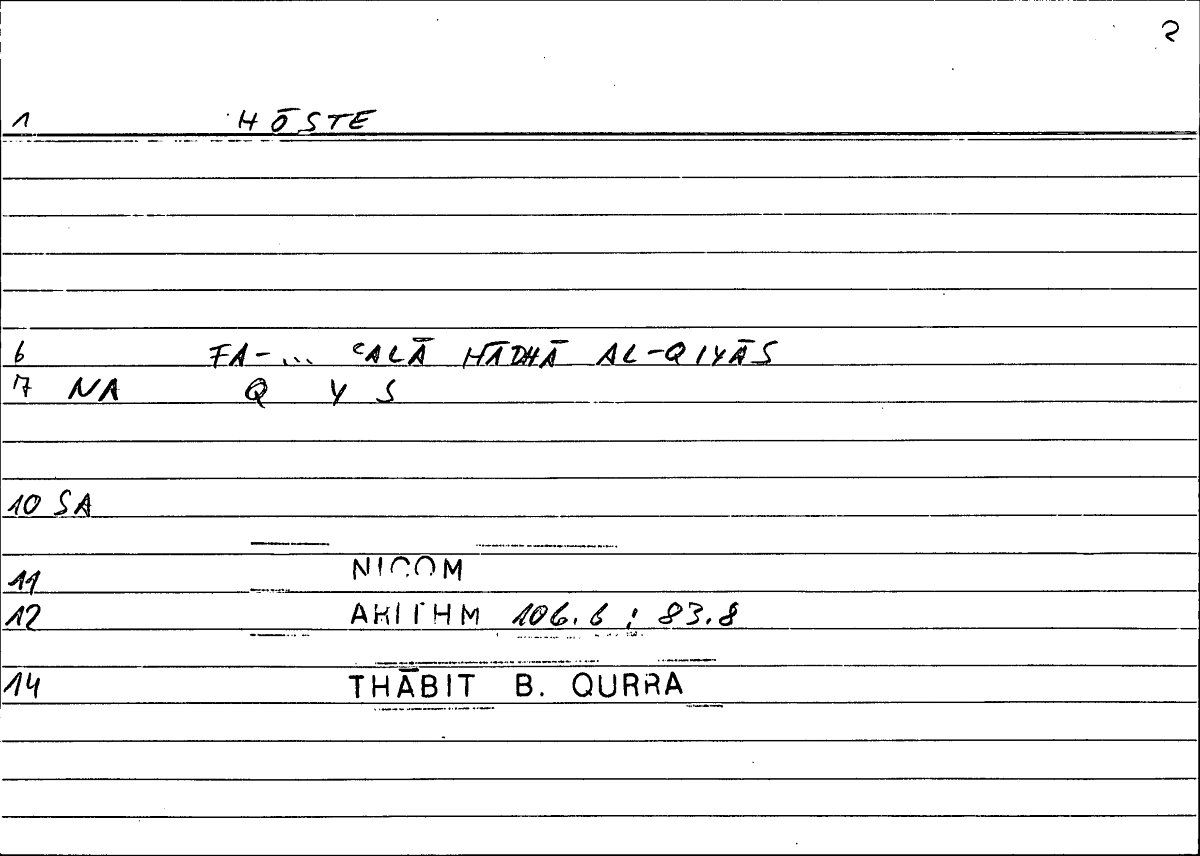 2
1 HŌSTE
6 FA-... ʿALĀ HĀDHĀ AL-QIYĀS
7 NA Q Y S
10 SA
11 NICOM
12 ARITHM 106.6 ; 83.8
14 THĀBIT B. QURRA